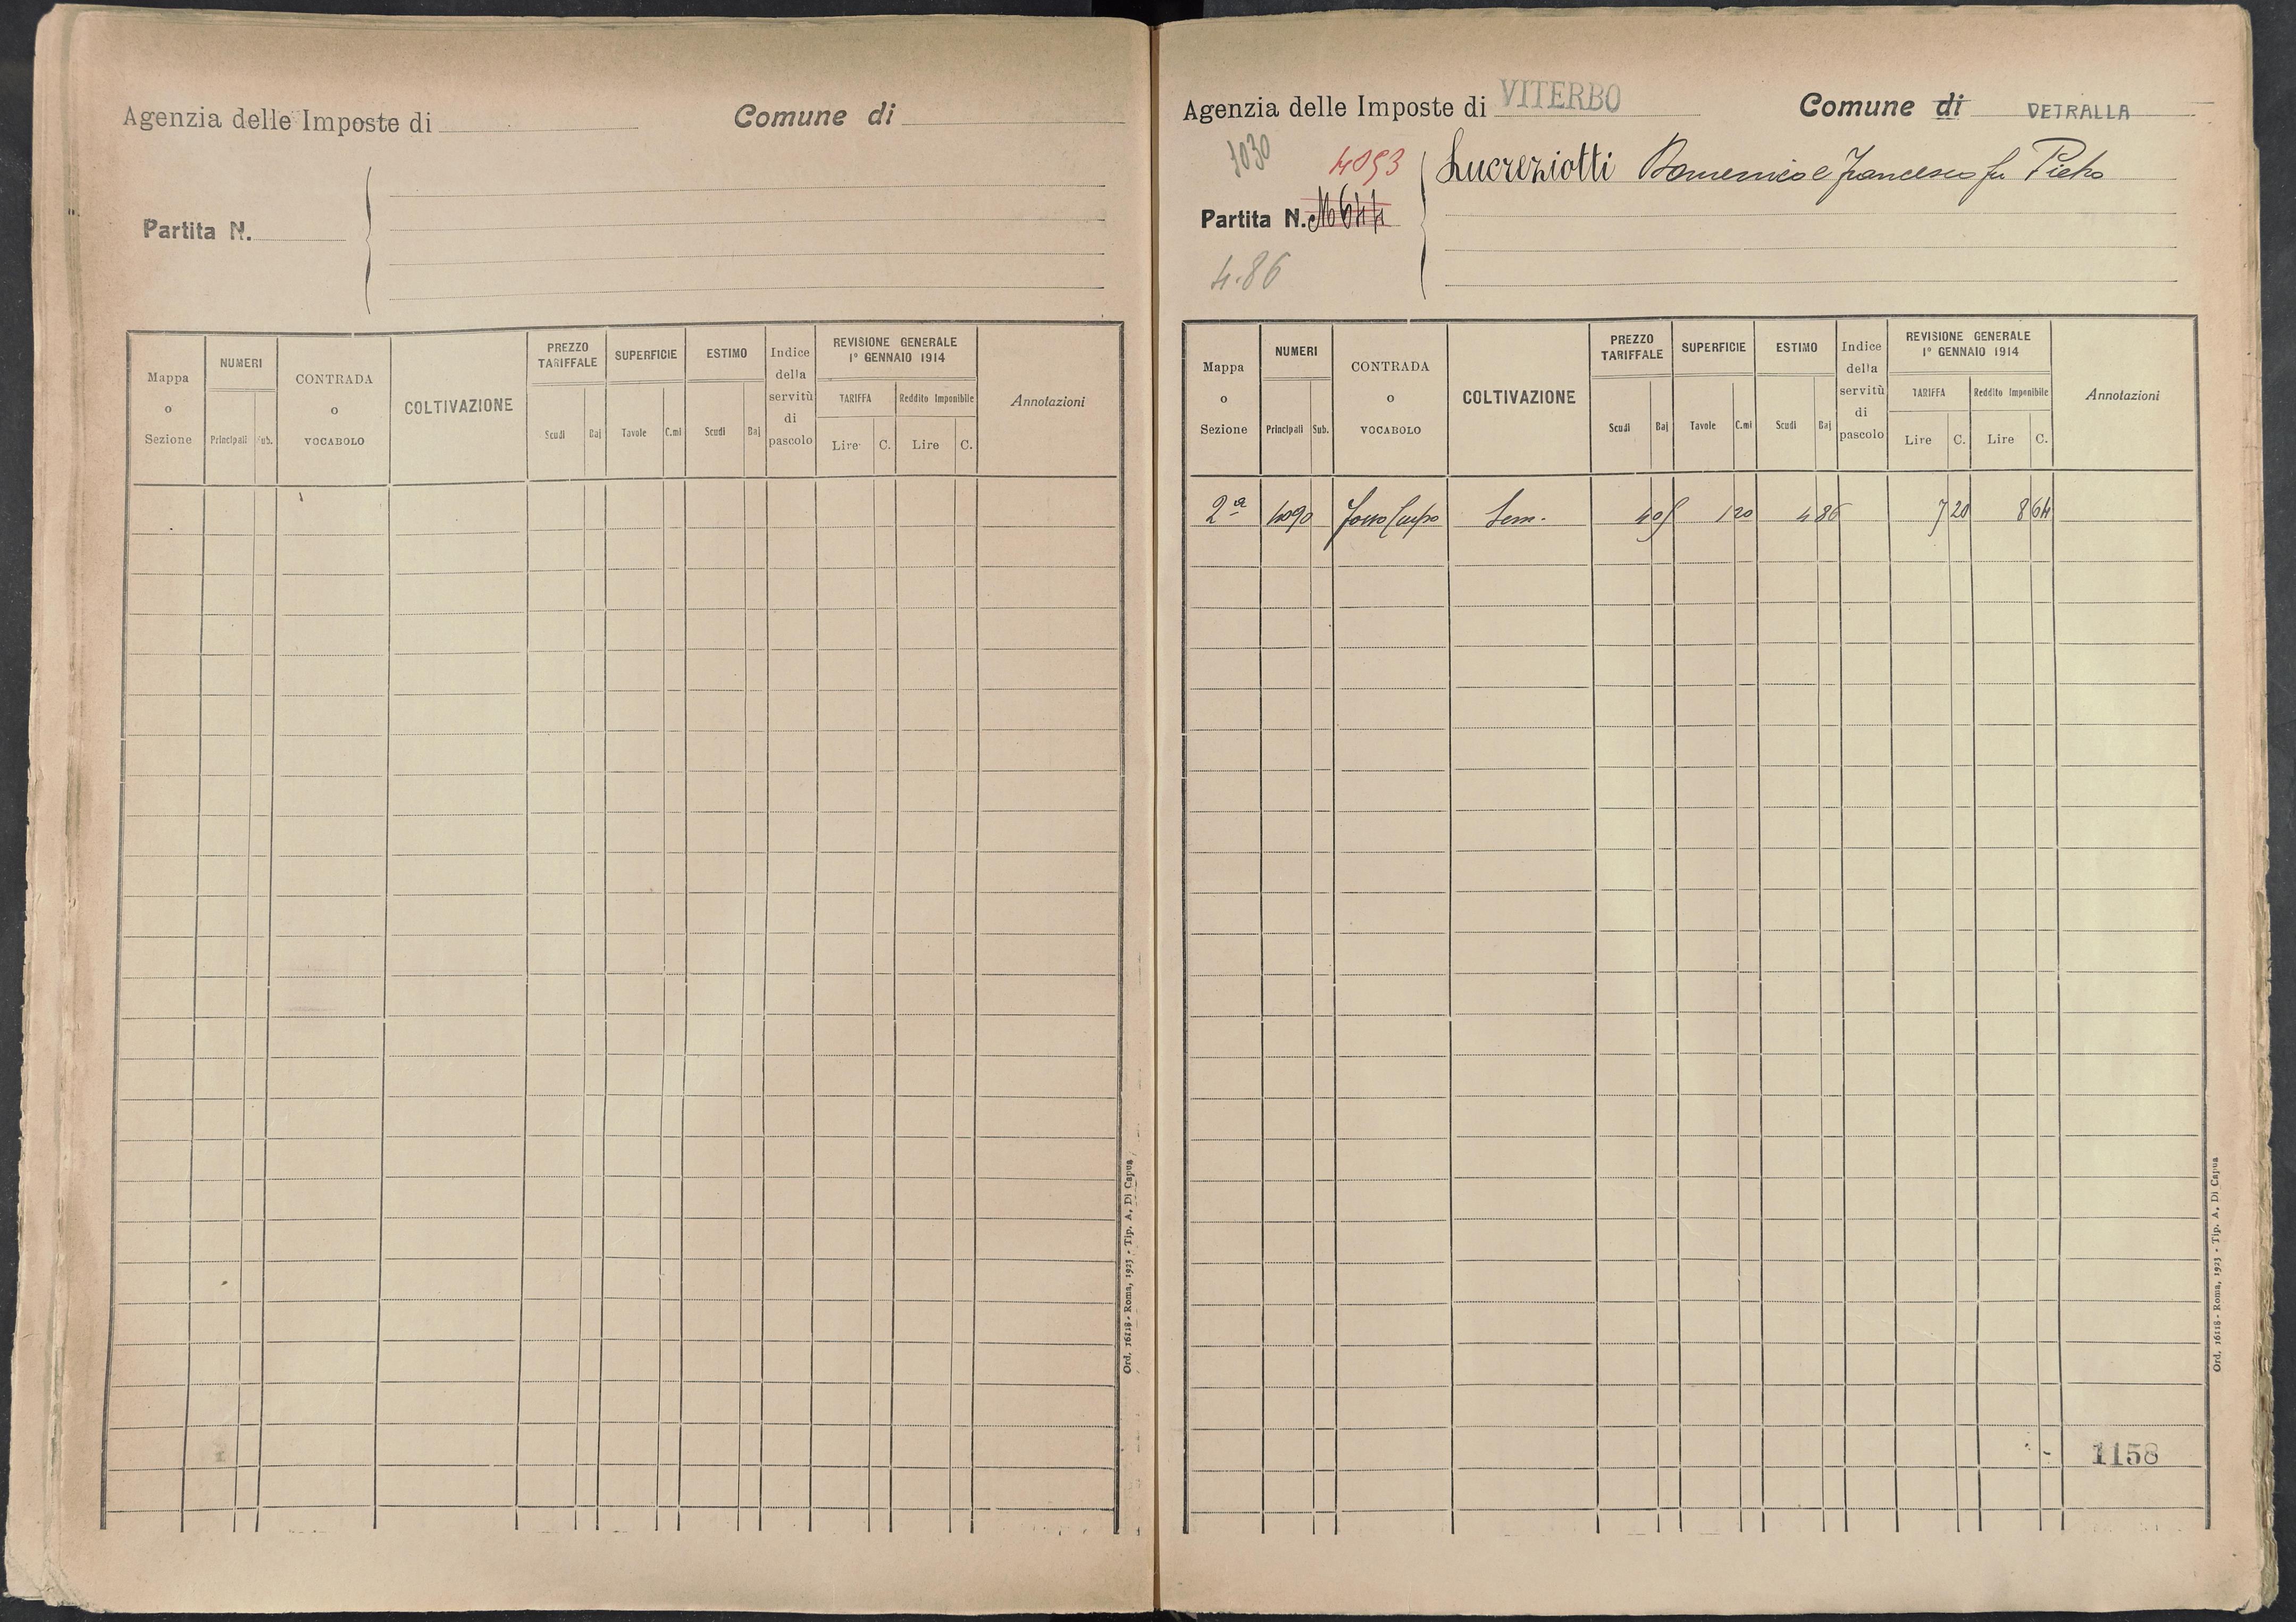 Agenzia delle Imposte di
Comune di
Partita N.
Mappa o Sezione
NUMERI
Principali
Sub.
CONTRADA o VOCABOLO
COLTIVAZIONE
PREZZO TARIFFALE
Scudi
Baj
SUPERFICIE
Tavole
C.mi
ESTIMO
Scudi
Baj
Indice della servitù di pascolo
REVISIONE GENERALE
1° GENNAIO 1914
TARIFFA
Reddito Imponibile
Lire
C.
Lire
C.
Annotazioni
Ord. 16118 - Roma, 1923 - Tip. A. Di Capua
Agenzia delle Imposte di VITERBO
Comune di VETRALLA
1030
4093
Lucreziotti Domenico e Francesco fu Pietro
Partita N.
4.86
Mappa o Sezione
NUMERI
Principali
Sub.
CONTRADA o VOCABOLO
COLTIVAZIONE
PREZZO TARIFFALE
Scudi
Baj
SUPERFICIE
Tavole
C.mi
ESTIMO
Scudi
Baj
Indice della servitù di pascolo
REVISIONE GENERALE
1° GENNAIO 1914
TARIFFA
Reddito Imponibile
Lire
C.
Lire
C.
Annotazioni
2ª 4090 Sem. 4 05 1 20 4 86 7 20 8 64
1158
Ord. 16118 - Roma, 1923 - Tip. A. Di Capua